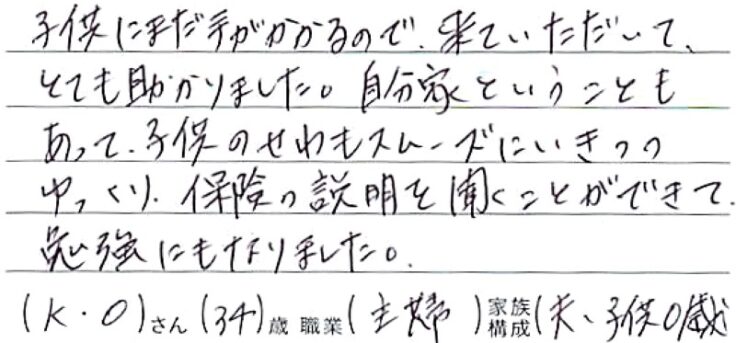 子供にまだ手がかかるので、来ていただいて、
とても助かりました。自分家ということも
あって、子供のせわもスムーズにいきつつ
ゆっくり、保険の説明を聞くことができて、
勉強にもなりました。
(K・O)さん(34)歳 職業(主婦)家族構成(夫、子供0歳